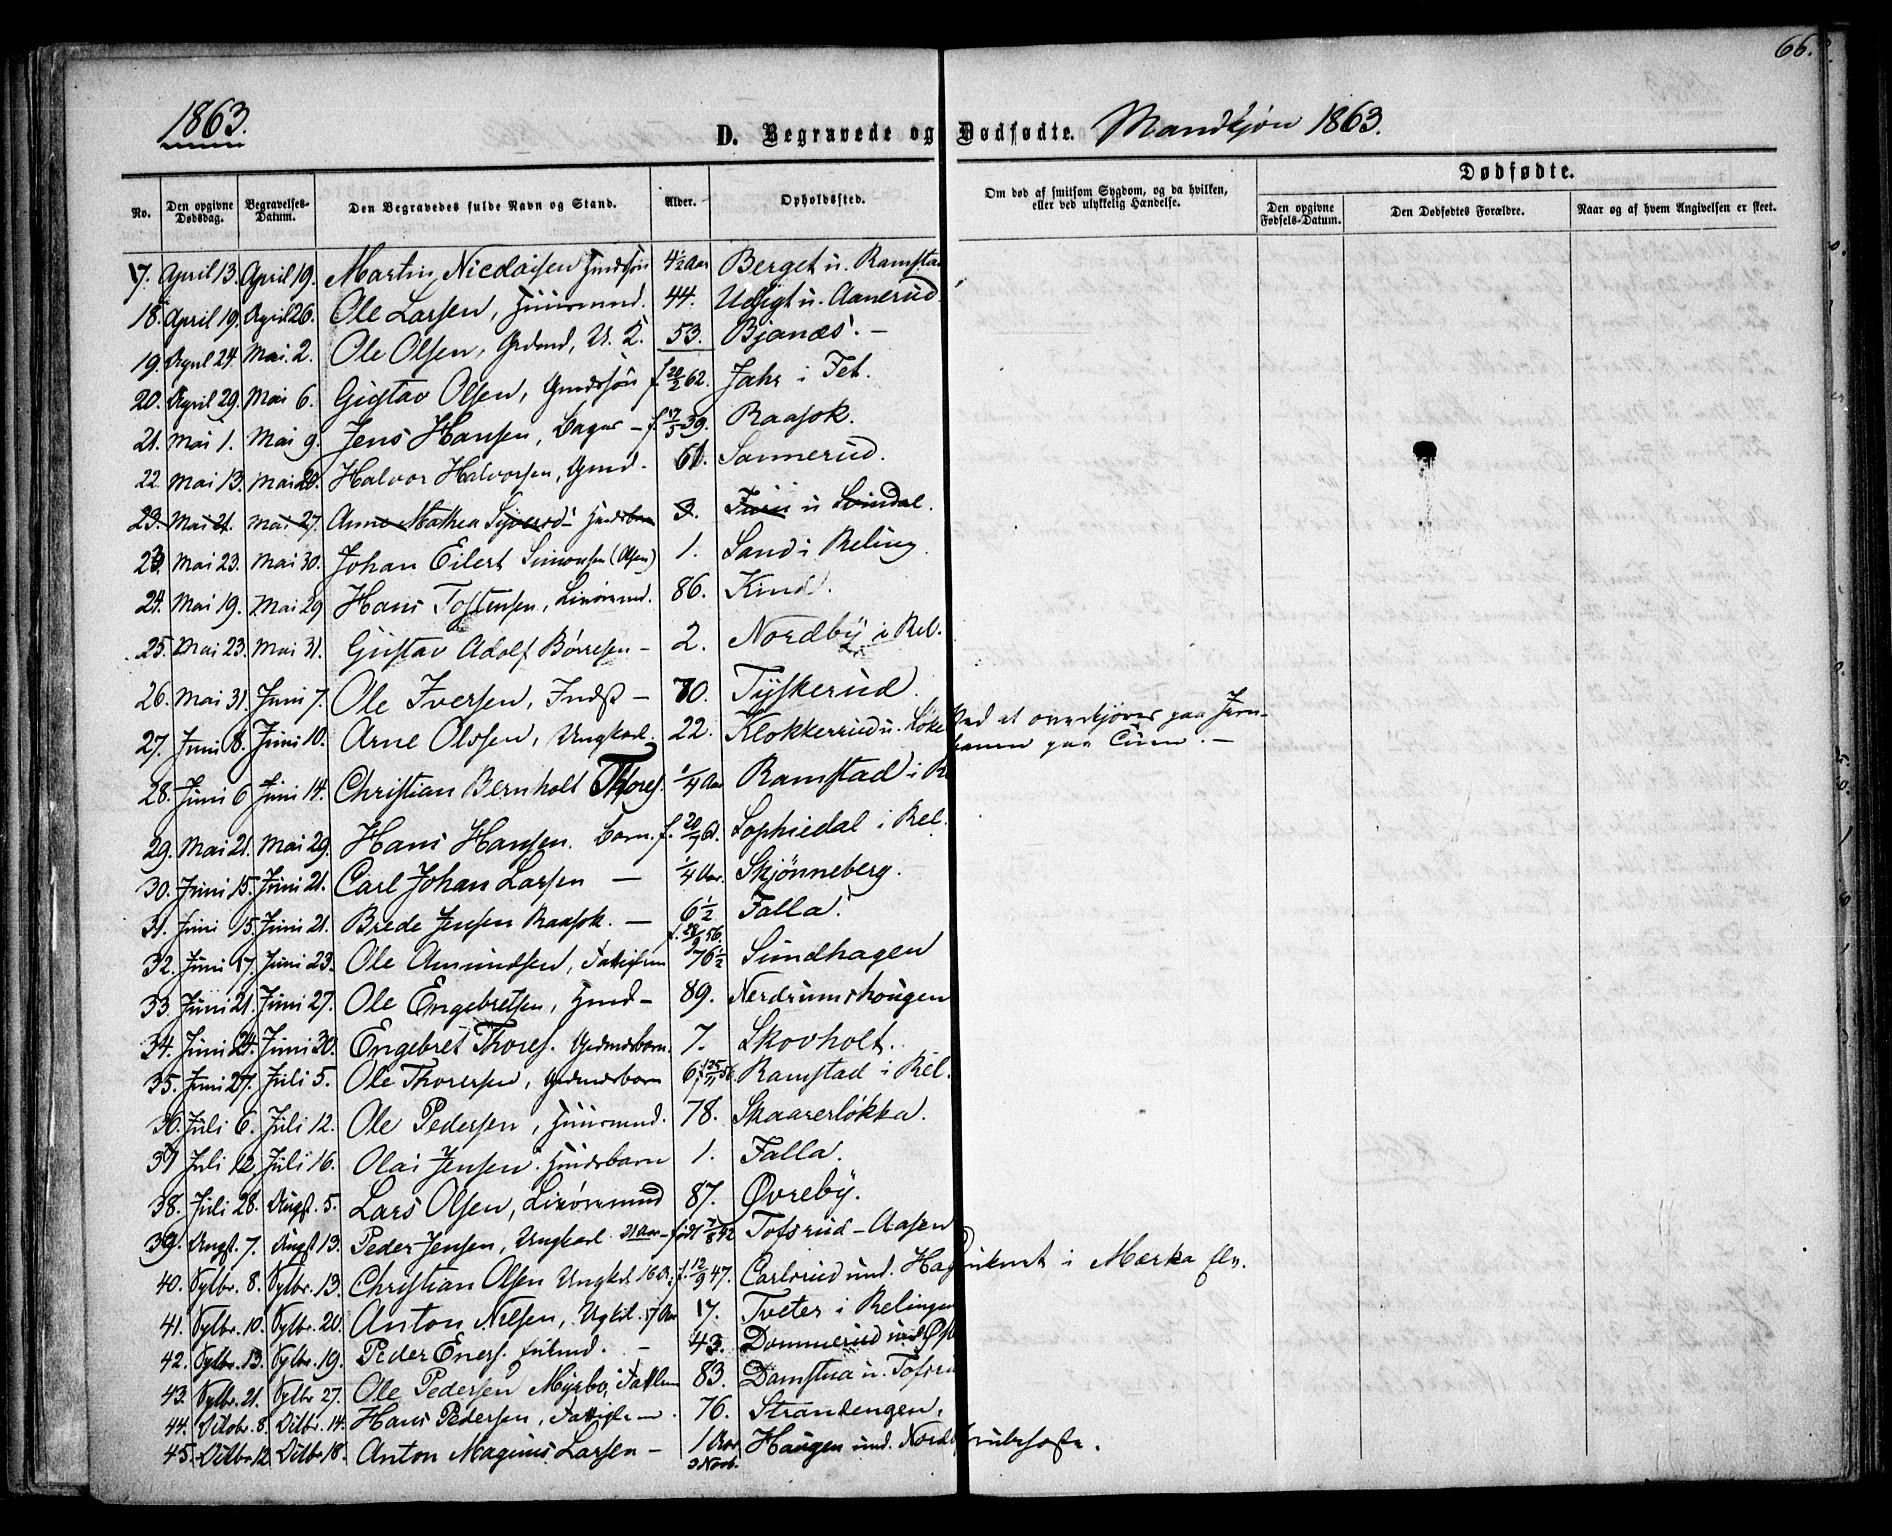 66.
1863.
D. Begravede og Dødfødte. Mandkjøn 1863.
Dødfødte.
No. Den opgivne Dødsdag. Begravelses-Datum. Den Begravedes fulde Navn og Stand. Alder. Opholdssted. Om død af smitsom Sygdom, og da hvilken, eller ved ulykkelig Hændelse. Den opgivne Fødsels-Datum. Den Dødfødtes Forældre. Naar og af hvem Angivelsen er skeet.
17. April 13. April 19. Martin Nicolaisen 4½ Aar Berget u. Ramstad
18. April 19. April 26. Ole Larsen, Huusmnd. 44. Udsigt u. Aanerud.
19. April 24 Mai 2. Ole Olsen, Grdmd, 53. Bjanæs. –
20. April 29. Mai 6. Gustav Olsen, f. 20/2 62. Jahr i Fet.
21. Mai 1. Mai 9. Jens Hansen, – f. 17/5 39. Raasok.
22. Mai 13. Mai Halvor Halvorsen, 61. Sannerud.
23. Mai 21. Mai 27. Anne Mathea 3. u Svindal.
23. Mai 23. Mai 30. Johan Eilert Simonsen (Olsen) 1. Sand i Reling.
24. Mai 19. Mai 29 Hans Tostensen, 86. Kind.
25. Mai 23. Mai 31. Gustav Adolf Børresen – 2. Nordby i Rel.
26. Mai 31. Juni 7. Ole Iversen, Inds – 70. Tyskerud.
27. Juni 8. Juni 10. Arne Olssen, Ungkarl. 22. Klokkerud u. Løke Ved at overkjøres paa Jern-
banen paa –
28. Juni 6 Juni 14. Christian Bernholt Thores. ¼ Aar Ramstad i R
29. Mai 21. Mai 29. Hans Hansen. Barn. f. Sophiedal i Rel.
30. Juni 15. Juni 21. Carl Johan Larsen – ¼ Aar. Skjønneberg.
31. Juni 15. Juni 21. Brede Jensen Raasok. – 6½ Falla.
f. 28/9 56.
32. Juni 17. Juni 23. Ole Amundsen, 76½ Sundhagen
33. Juni 21. Juni 27. Ole Engebretsen, – 89. Nerdrumshougen
34. Juni 24. Juni 30. Engebret Thores. Grdmdsbarn. 7. Skovholt.
35. Juni 27. Juli 5. Ole Thoresen, Grdmdsbarn 6 f. 25/11 56. Ramstad i Rel.
36. Juli 6. Juli 12. Ole Pedersen, Huusmnd. 78. Skaarerløkka.
37 Juli 12. Juli 16. Olai Jensen. Husmdsbarn 1. Falla.
38. Juli 28. Augst. 5. Lars Olsen, 87. Øvreby.
39. Augst. 7. Augst 13. Peder Jensen, Ungkarl. 21 Aar – født 42 Tofsrud-Aasen
40. Sptbr. 8. Sptbr. 13. Christian Olsen Ungkrl. 16 f. 12/9 47. Carlsrud und. Hag druknet i Mærka Elv.
41. Sptbr. 10. Sptbr. 20. Anton Nilsen, Ungkrl. 17 Aar 17. Tveter i Relingen
42. Sptbr. 13. Sptbr. 19. Peder Eners. – 43. Dommerud und. Øst
43. Sptbr. 21. Sptbr 27. Ole Pedersen Myrbo, 83. Damstua u. Tofsru
44. Octobr. 8. Octbr. 14. Hans Pedersen, 76. Strandengen.
45. Octbr 12 Octbr 18. Anton Magnus Larsen – 1 Aar Haugen und. Nordb